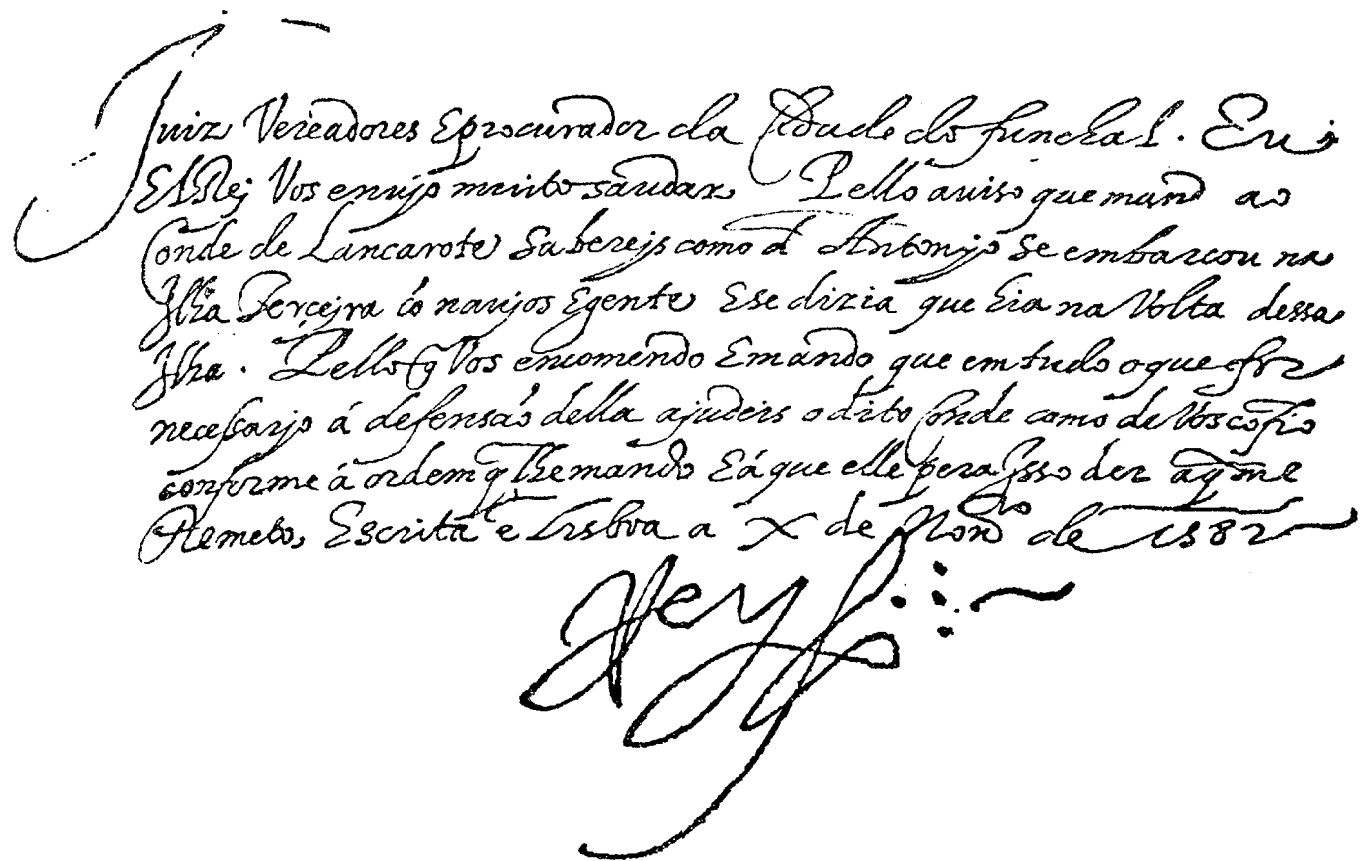 Juiz Vereadores E procurador da Cidade do funchal. Eu
El Rej Vos enujo muito saudar Pello auiso que mando ao
Conde de Lancarote Sabereis como dõ Antonjo se embarcou na
Ilha Terçejra cõ naujos E gente E se dizia que hia na Volta dessa
Ilha. Pello q̃ Vos encomendo E mando que em tudo o que for
necessarjo á defensaõ della ajudeis o dito Conde como de Vos cõfio
conforme á ordem q̃ lhe mando E á que elle pera Isso der a q̃ me
Remeto, Escrita ẽ Lisboa a X de Nou.ro de 1582
Rey